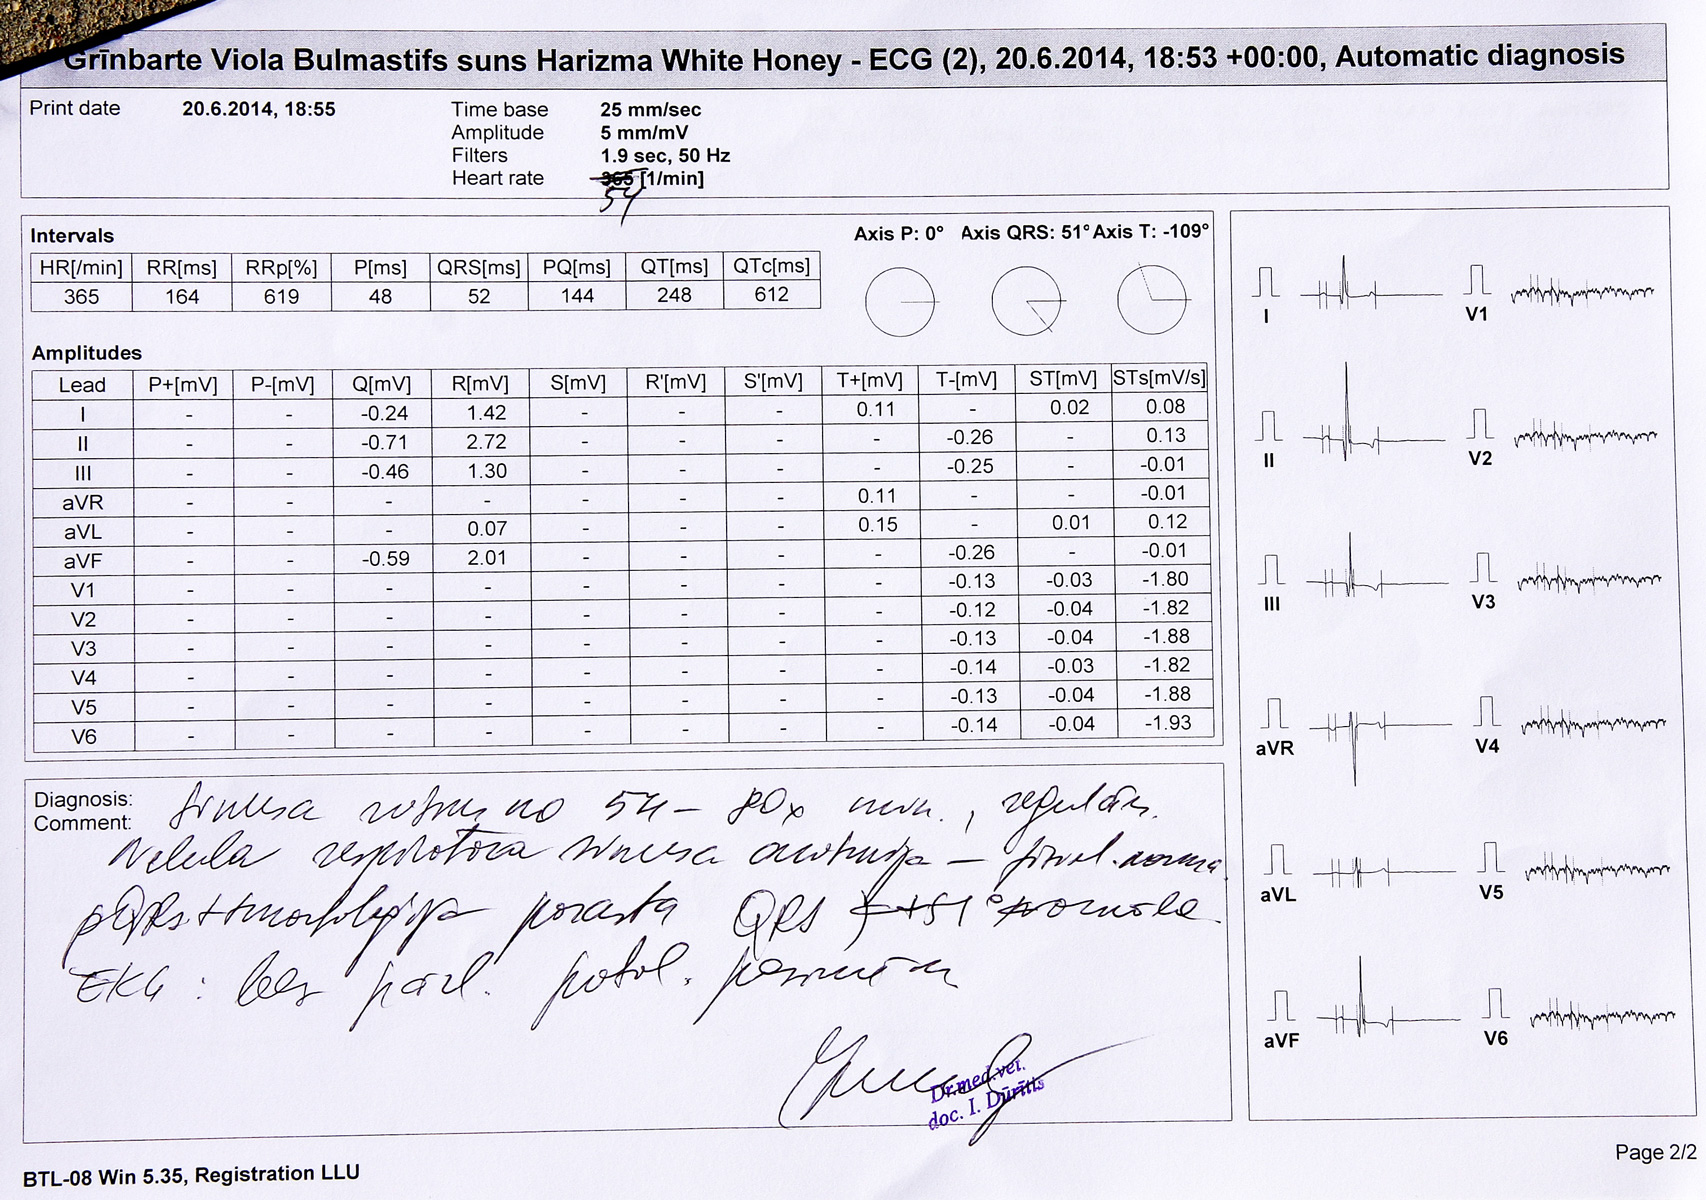 Grīnbarte Viola Bulmastifs suns Harizma White Honey - ECG (2), 20.6.2014, 18:53 +00:00, Automatic diagnosis
Print date 20.6.2014, 18:55
Time base 25 mm/sec
Amplitude 5 mm/mV
Filters 1.9 sec, 50 Hz
Heart rate 365 [1/min]
54
Intervals
HR[/min] RR[ms] RRp[%] P[ms] QRS[ms] PQ[ms] QT[ms] QTc[ms]
365 164 619 48 52 144 248 612
Axis P: 0° Axis QRS: 51° Axis T: -109°
Amplitudes
Lead P+[mV] P-[mV] Q[mV] R[mV] S[mV] R'[mV] S'[mV] T+[mV] T-[mV] ST[mV] STs[mV/s]
I - - -0.24 1.42 - - - 0.11 - 0.02 0.08
II - - -0.71 2.72 - - - - -0.26 - 0.13
III - - -0.46 1.30 - - - - -0.25 - -0.01
aVR - - - - - - - 0.11 - - -0.01
aVL - - - 0.07 - - - 0.15 - 0.01 0.12
aVF - - -0.59 2.01 - - - - -0.26 - -0.01
V1 - - - - - - - - -0.13 -0.03 -1.80
V2 - - - - - - - - -0.12 -0.04 -1.82
V3 - - - - - - - - -0.13 -0.04 -1.88
V4 - - - - - - - - -0.14 -0.03 -1.82
V5 - - - - - - - - -0.13 -0.04 -1.88
V6 - - - - - - - - -0.14 -0.04 -1.93
Diagnosis: Sinusa ritms no 54 - 80x min., regulārs.
Comment:
Neliela respiratora sinusa aritmija - norma.
morfoloģija parasta QRS +51° normāla
EKG: bez
Dr.med.vet.
doc. I. Dūrītis
I V1
II V2
III V3
aVR V4
aVL V5
aVF V6
Page 2/2
BTL-08 Win 5.35, Registration LLU